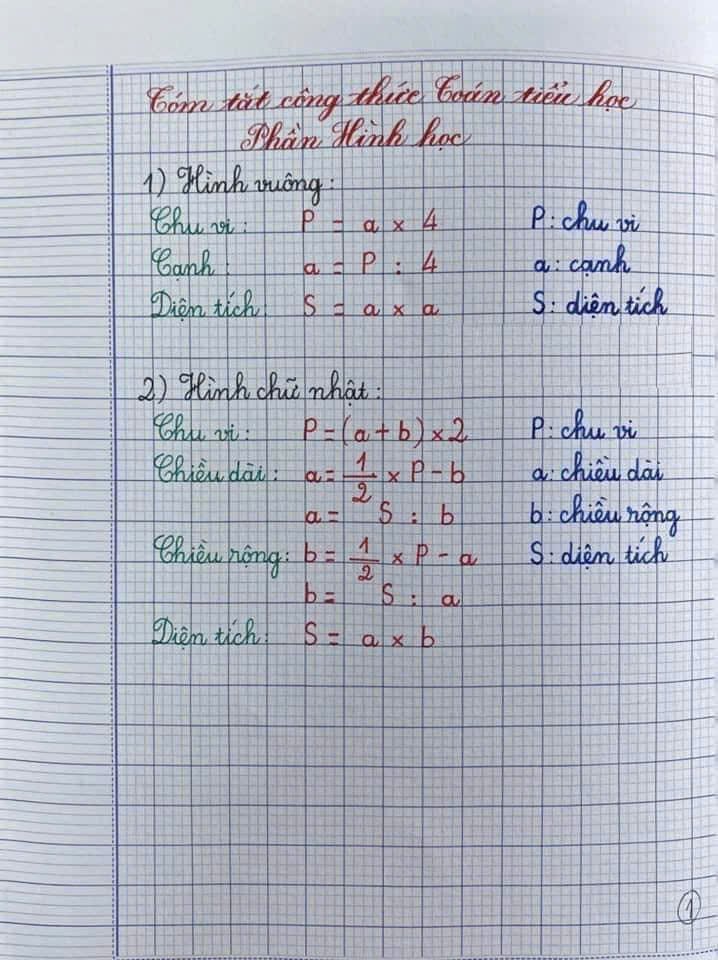 Tóm tắt công thức Toán tiểu học
Phần Hình học
1) Hình vuông:
Chu vi: P = a x 4 P: chu vi
Cạnh: a = P : 4 a: cạnh
Diện tích: S = a x a S: diện tích
2) Hình chữ nhật:
Chu vi: P = (a + b) x 2 P: chu vi
Chiều dài: a = 1/2 x P - b a: chiều dài
a = S : b b: chiều rộng
Chiều rộng: b = 1/2 x P - a S: diện tích
b = S : a
Diện tích: S = a x b
1